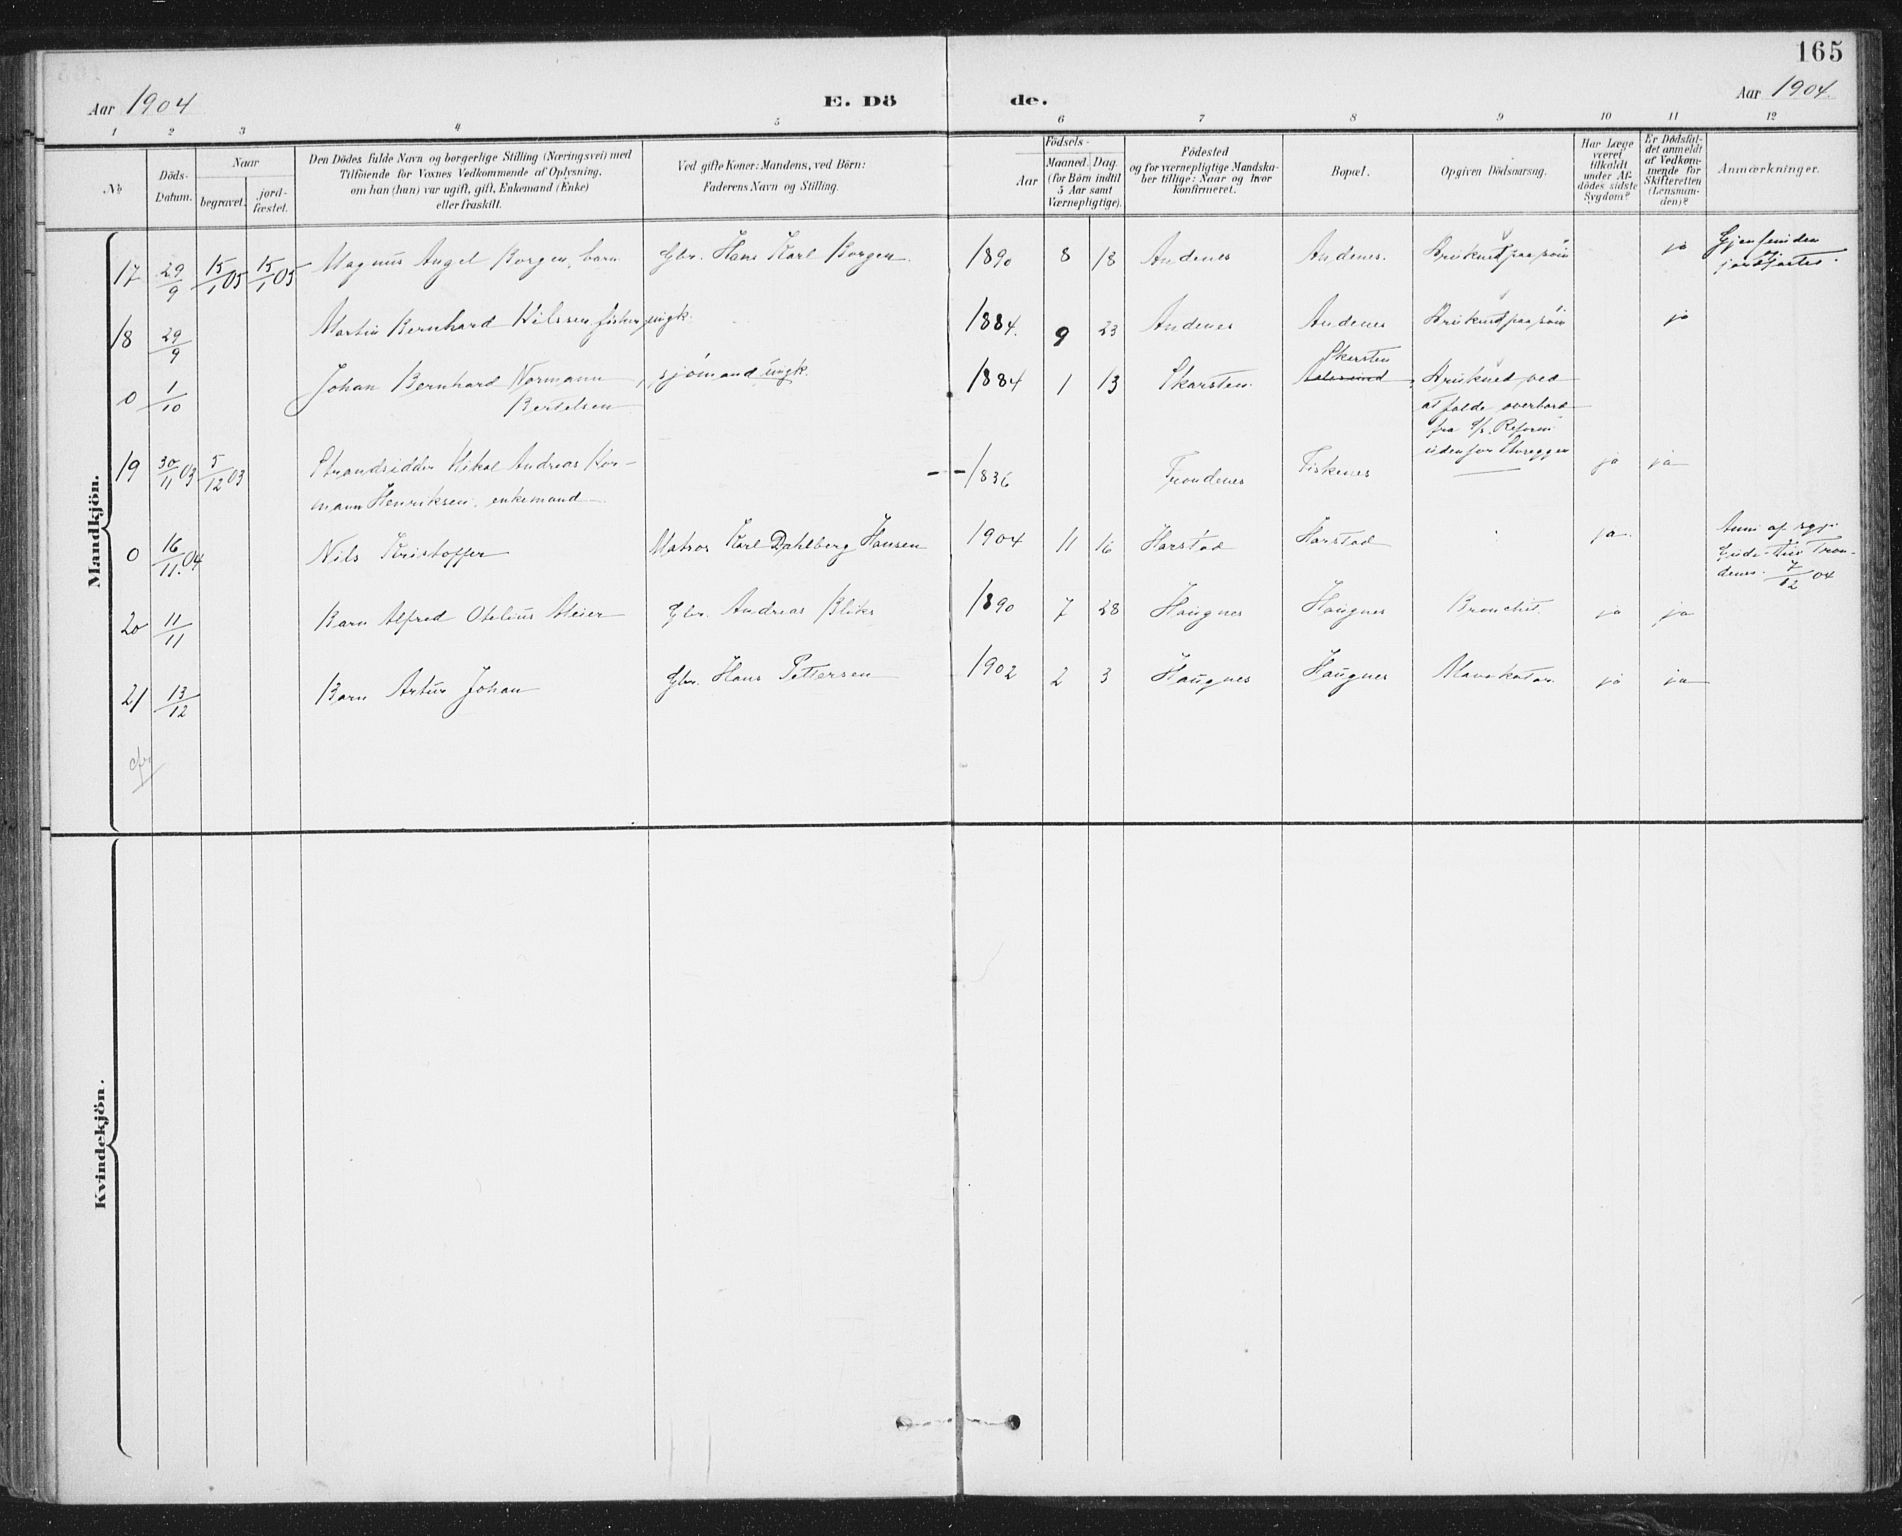 165
Aar 1904
E. Dö de.
Aar 1904.
1 2 3 4 5 6 7 8 9 10 11 12
№
Döds-Datum.
Naar
begravet.
jord-fæstet.
Den Dödes fulde Navn og borgerlige Stilling (Næringsvei) med
Tilföiende for Voxnes Vedkommende af Oplysning,
om han (hun) var ugift, gift, Enkemand (Enke)
eller fraskilt.
Ved gifte Koner: Mandens, ved Börn:
Faderens Navn og Stilling.
Födsels-
Aar
Maaned. Dag.
(for Börn indtil
5 Aar samt
Værnepligtige).
Födested
og for værnepligtige Mandska-
ber tillige: Naar og hvor
Konfirmeret.
Bopæl.
Opgiven Dödsaarsag.
Har Læge
været
tilkaldt
under Af-
dödes sidste
Sygdom?
Er Dödsfal-
det anmeldt
af Vedkom-
mende for
Skifteretten
(Lensman-
den)?
Anmærkninger.
Mandkjön.
17 29/9 15/1 05 15/1 05 Magnus Angel Borgen, barn Gbr. Hans Karl Borgen 1890 8 18 Andenes Andenes. Druknet paa söen ja Gjenfunden
jordfæstet.
18 29/9 Martin Bernhard Nilssen, fisker, ungk. 1884. 9 23 Andenes Andenes Druknet paa söen ja
0 1/10 Johan Bernhard Normann Bertelsen, sjömand ungk. 1884 1 13 Skarsten. Skarsten Druknet ved
at falde overbord
fra S/s. Reform
udenfor Storeggen
19 30/11 03 5/12 03 Strandsidder Nikol Andreas Nor-
mann Henriksen, enkemand 1836 Trondenes Fiskenes — ja ja
0 16/11.04 Nils Kristoffer Matros Karl Dahlberg Hansen 1904 11 16 Harstad Harstad ja.
denes. 7/12 04
20 11/11 Barn Alfred Otelius Meier Gbr. Andreas Bliks 1890 7 28 Haugnes Haugnes Bronchit. ja ja
21 13/12 Barn Artur Johan Gbr. Hans Pettersen 1902 2 3 Haugnes Haugnes Mavekatar. ja ja
Kvindekjön.